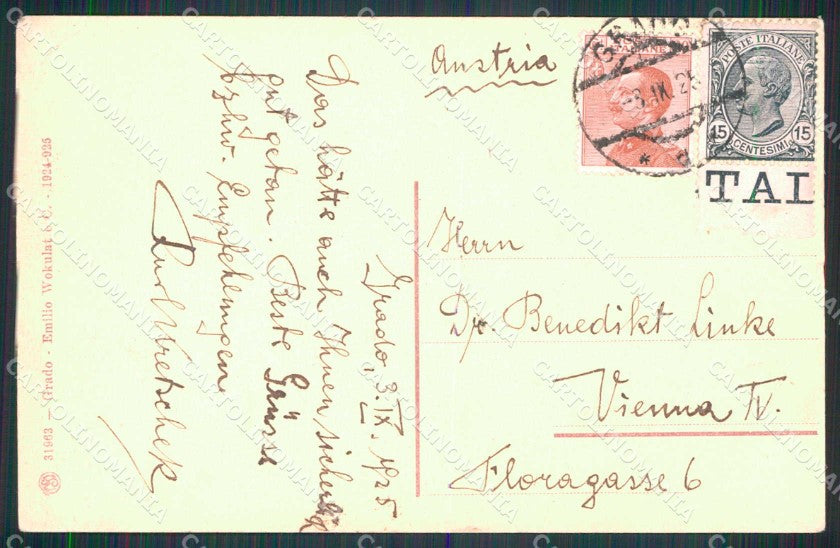 Austria
GRADO
-3.IX.25
POSTE ITALIANE
15 15
CENTESIMI
TAL
Herrn
Dr. Benedikt Linke
Vienna IV.
Floragasse 6
Grado, 3. IX. 1925
Das hätte auch Ihnen sicherlich
gut getan. Beste Grüsse
bzhw. Empfehlungen
31963 — Grado - Emilio Wokulat & C. - 1924-925
CARTOLINOMANIA